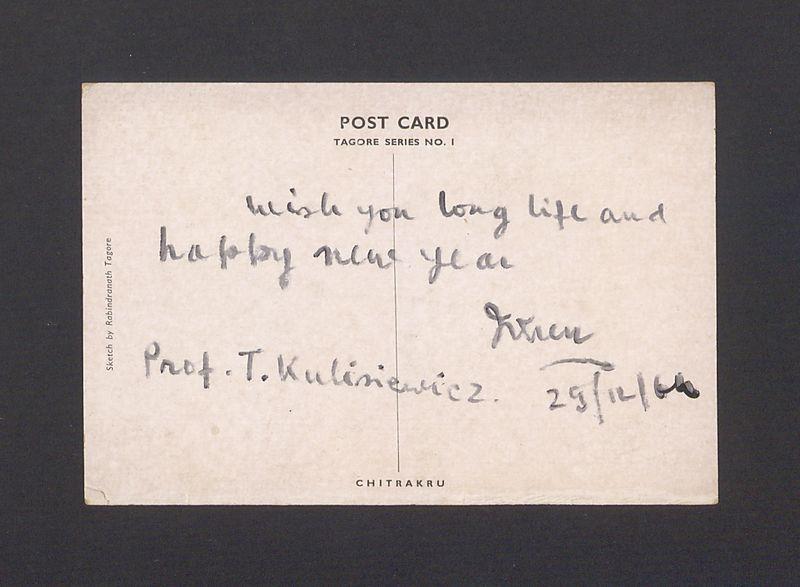 POST CARD
TAGORE SERIES NO. 1
wish you long life and
happy new year
Prof. T. Kulisiewicz.
29/12/64
Sketch by Rabindranath Tagore
CHITRAKRU